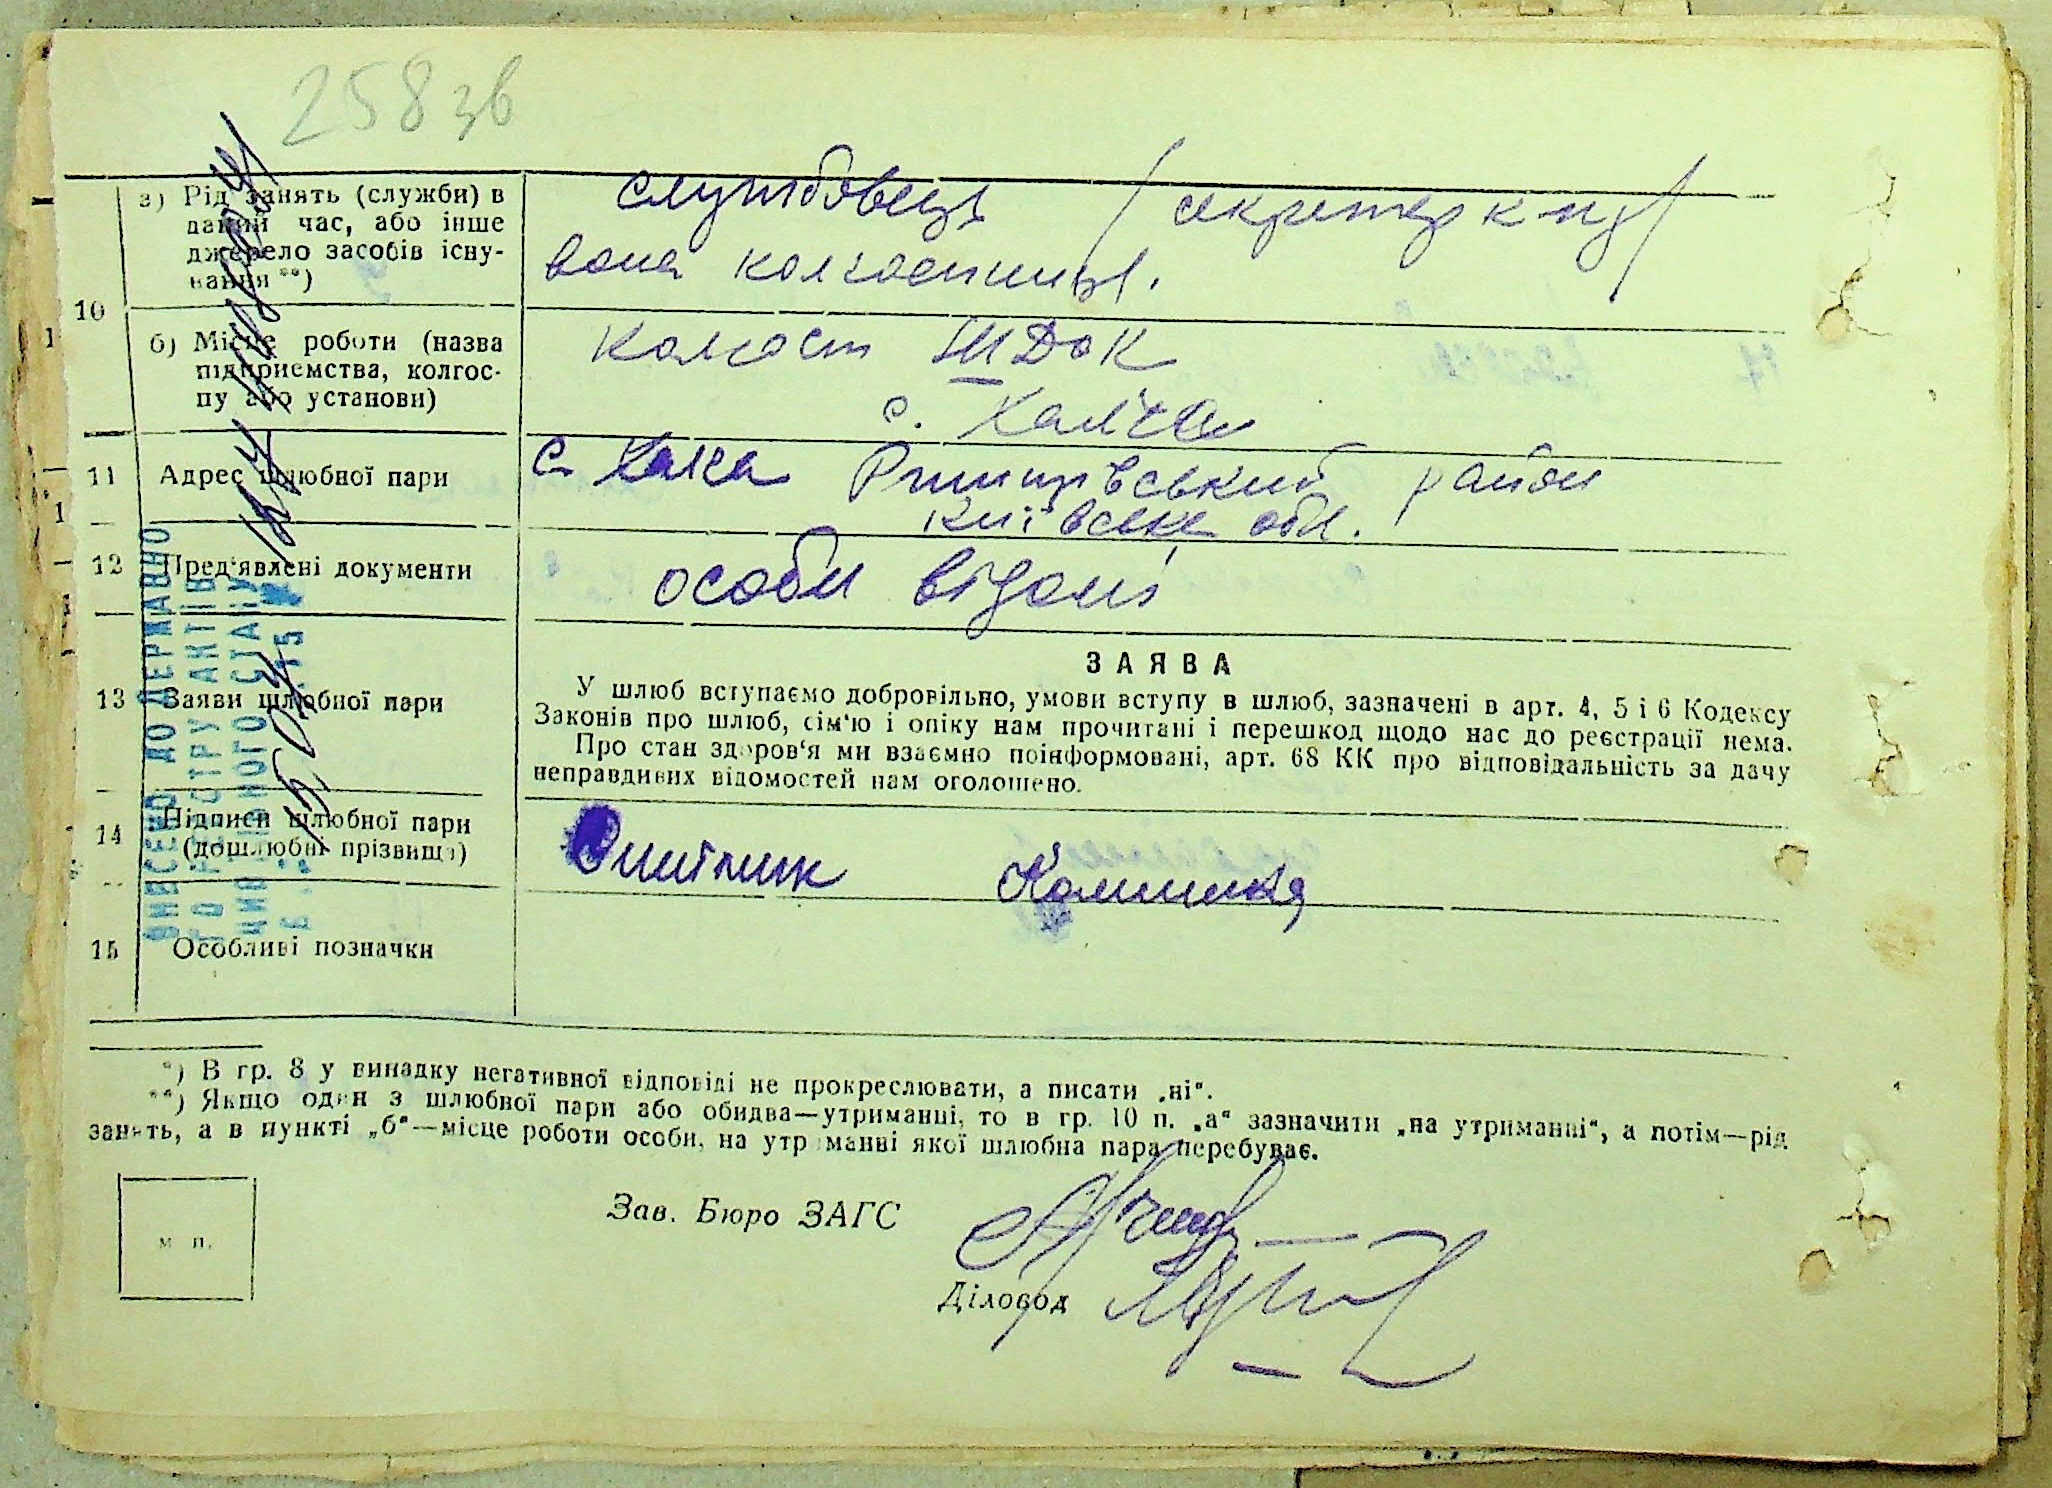 258 зв
а) Рід занять (служби) в
даний час, або інше
джерело засобів існу-
вання **)
службовець / секретар к
вона колгоспниця.
10
б) Місце роботи (назва
підприємства, колгос-
пу або установи)
колгосп
с.
11 Адрес шлюбної пари
с. район
Київське обл.
12 Пред'явлені документи
особи відомі
13 Заяви шлюбної пари
ЗАЯВА
У шлюб вступаємо добровільно, умови вступу в шлюб, зазначені в арт. 4, 5 і 6 Кодексу
Законів про шлюб, сім'ю і опіку нам прочитані і перешкод щодо нас до реєстрації нема.
Про стан здоров'я ми взаємно поінформовані, арт. 68 КК про відповідальність за дачу
неправдивих відомостей нам оголошено.
14 Підписи шлюбної пари
(дошлюбні прізвища)
15 Особливі позначки
ВНЕСЕНО ДО ДЕРЖАВНО
ГО РЕЄСТРУ АКТІВ
ЦИВІЛЬНОГО СТАНУ
*) В гр. 8 у випадку негативної відповіді не прокреслювати, а писати „ні“.
**) Якщо один з шлюбної пари або обидва—утриманці, то в гр. 10 п. „а“ зазначити „на утриманні“, а потім—рід
занять, а в пункті „б“—місце роботи особи, на утриманні якої шлюбна пара перебуває.
м п.
Зав. Бюро ЗАГС
Діловод